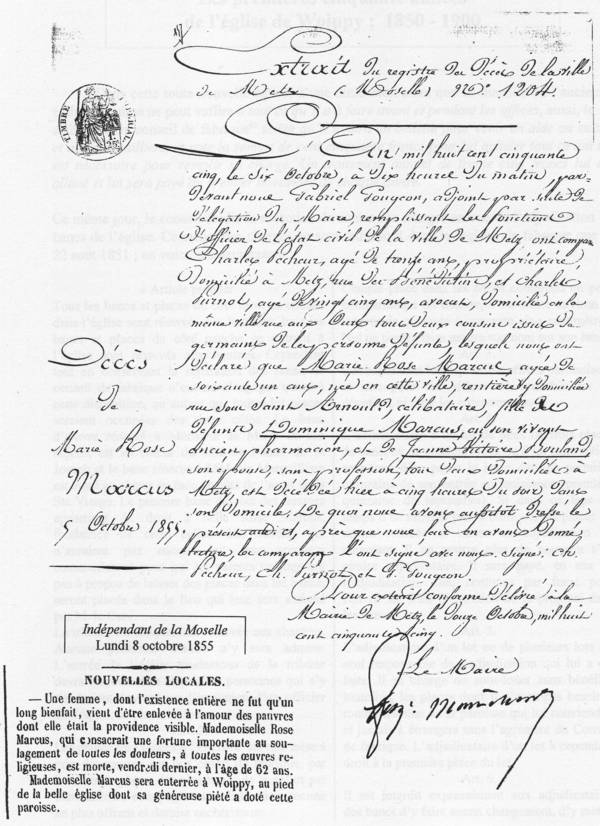 Extrait du registre des Décès de la ville
de Metz (Moselle) No. 1204.
TIMBRE
L'An mil huit cent cinquante
cinq, le Six Octobre, à Dix heures du matin, par
devant nous Gabriel Gougeon, adjoint par suite de
délégation du Maire, remplissant les fonctions
d'officier de l'état civil de la ville de Metz, ont comparu
Charles Pecheur, agé de trente ans, propriétaire,
domicilié à Metz, rue des Bénédictins, et Charles
Purnot, agé de vingt cinq ans, avocat, domicilié en la
même ville rue aux Ours tous deux cousins issus de
germains de la personne défunte, lesquels nous ont
déclaré que Marie Rose Marcus, agée de
soixante un ans, née en cette ville, rentière y domiciliée
rue sous Saint Arnould, célibataire, fille de
défunts Dominique Marcus, en son vivant
ancien pharmacien, et de Jeanne Victoire Bouland,
son épouse, sans profession, tous deux domiciliés à
Metz, est décédée hier à cinq heures du soir, dans
son domicile. De quoi nous avons aussitôt dressé le
présent acte. Et, après que nous leur en avons donné
lecture, les comparans l'ont signé avec nous. Signé: Ch.
Pecheur, Ch. Purnot et G. Gougeon.
Pour extrait conforme délivré à la
Mairie de Metz, le Douze Octobre, mil huit
cent cinquante cinq.
Le Maire
Décès
de
Marie Rose
Marcus
5 Octobre 1855.
Indépendant de la Moselle
Lundi 8 octobre 1855
NOUVELLES LOCALES.
— Une femme, dont l'existence entière ne fut qu'un
long bienfait, vient d'être enlevée à l'amour des pauvres
dont elle était la providence visible. Mademoiselle Rose
Marcus, qui consacrait une fortune importante au sou-
lagement de toutes les douleurs, à toutes les œuvres re-
ligieuses, est morte, vendredi dernier, à l'âge de 62 ans.
Mademoiselle Marcus sera enterrée à Woippy, au pied
de la belle église dont sa généreuse piété a doté cette
paroisse.